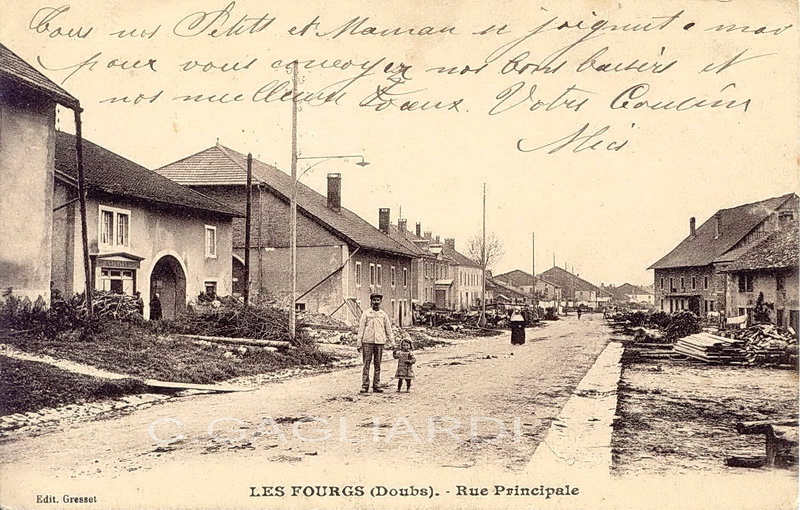 tous nos Petits et Maman se joignent a moi
pour vous envoyer nos bons baisers et
nos meilleurs Voeux. Votre Cousin
© GAGLIARDI
Edit. Gresset
LES FOURGS (Doubs). - Rue Principale